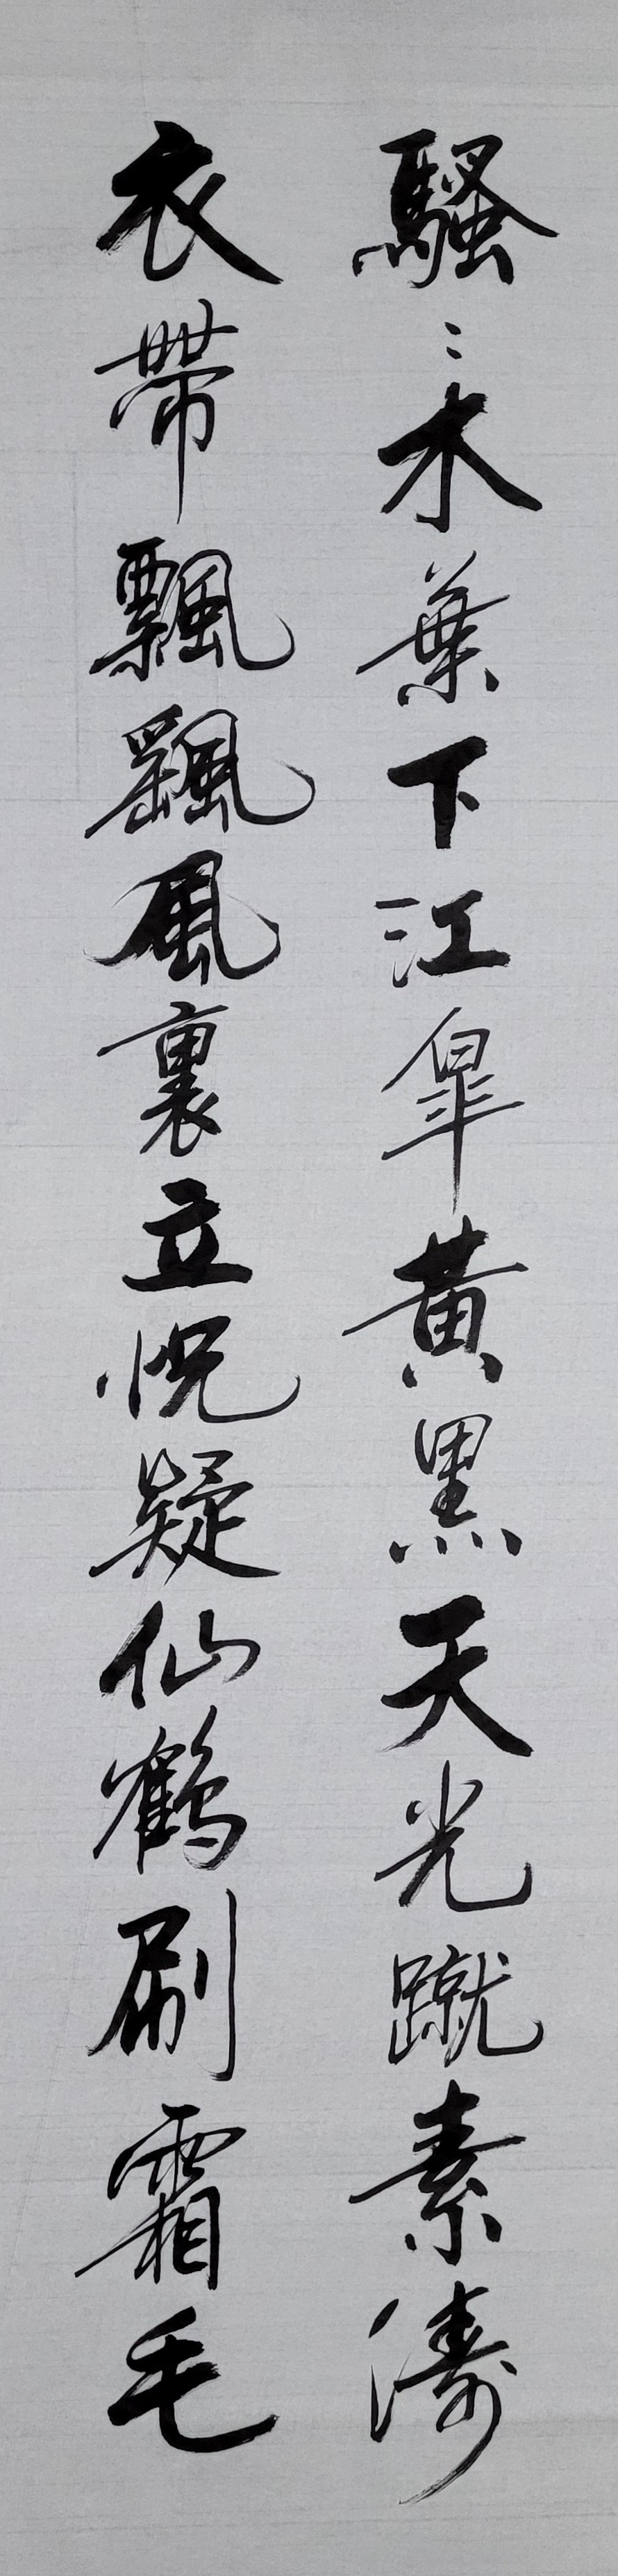 騷〻木葉下江皐黃黑天光蹴素濤
衣帶飄飖風裏立怳疑仙鶴刷霜毛